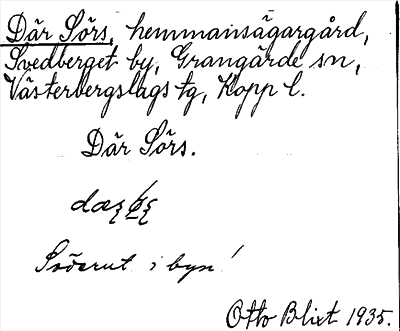 Där Sörs, hemmansägargård,
Svedberget by, Grangärde sn,
Västerbergslags tg, Kopp l.
Där Sörs.
Söderut i byn!
Otto Blixt 1935.